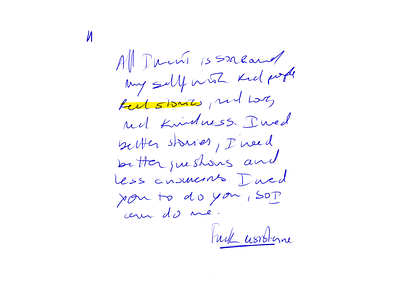 "
All I want is surround
my self with real people
Real stories, real love,
real kindness. I need
better stories, I need
better questions and
less answers. I need
you to do you, so I
can do me.